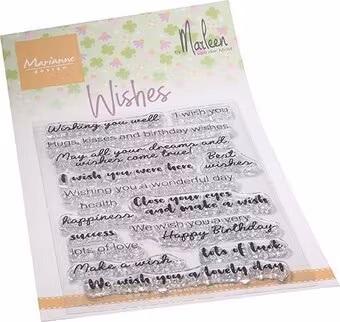 Marianne
design
by
Marleen
Wishes
Wishing you well
I wish you
Hugs, kisses and birthday wishes
May all your dreams and
wishes come true!
Best
wishes
I wish you were here
Wishing you a wonderful day
health
Close your eyes
and make a wish
happiness
We wish you a very
success
Happy Birthday
lots of love
Lots of luck
Make a wish
We wish you a lovely day